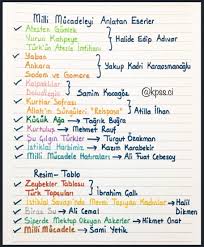 Milli Mücadeleyi Anlatan Eserler
Ateşten Gömlek
Vurun Kahpeye
Türk'ün Ateşle İmtihanı
Halide Edip Adıvar
Yaban
Ankara
Sodom ve Gomore
Yakup Kadri Karaosmanoğlu
Kalpaklılar
Doludizgin
Samim Kocagöz
@kpss.ci
Kurtlar Sofrası
Allah'ın Süngüleri "Reispaşa"
Atilla İlhan
Küçük Ağa → Tağrık Buğra
Kurtuluş → Mehmet Rauf
Şu Çılgın Türkler → Turgut Özakman
İstiklal Harbimiz → Kazım Karabekir
Milli Mücadele Hatıraları → Ali Fuat Cebesoy
Resim - Tablo
Zeybekler Tablosu
Türk Topçuları
İbrahim Çallı
İstiklal Savaşı'nda Mermi Taşıyan Kadınlar → Halil Dikmen
→ Ali Cemal
Siperde Mektup Okuyan Askerler → Hikmet Onat
Milli Mücadele → Sami Yetik